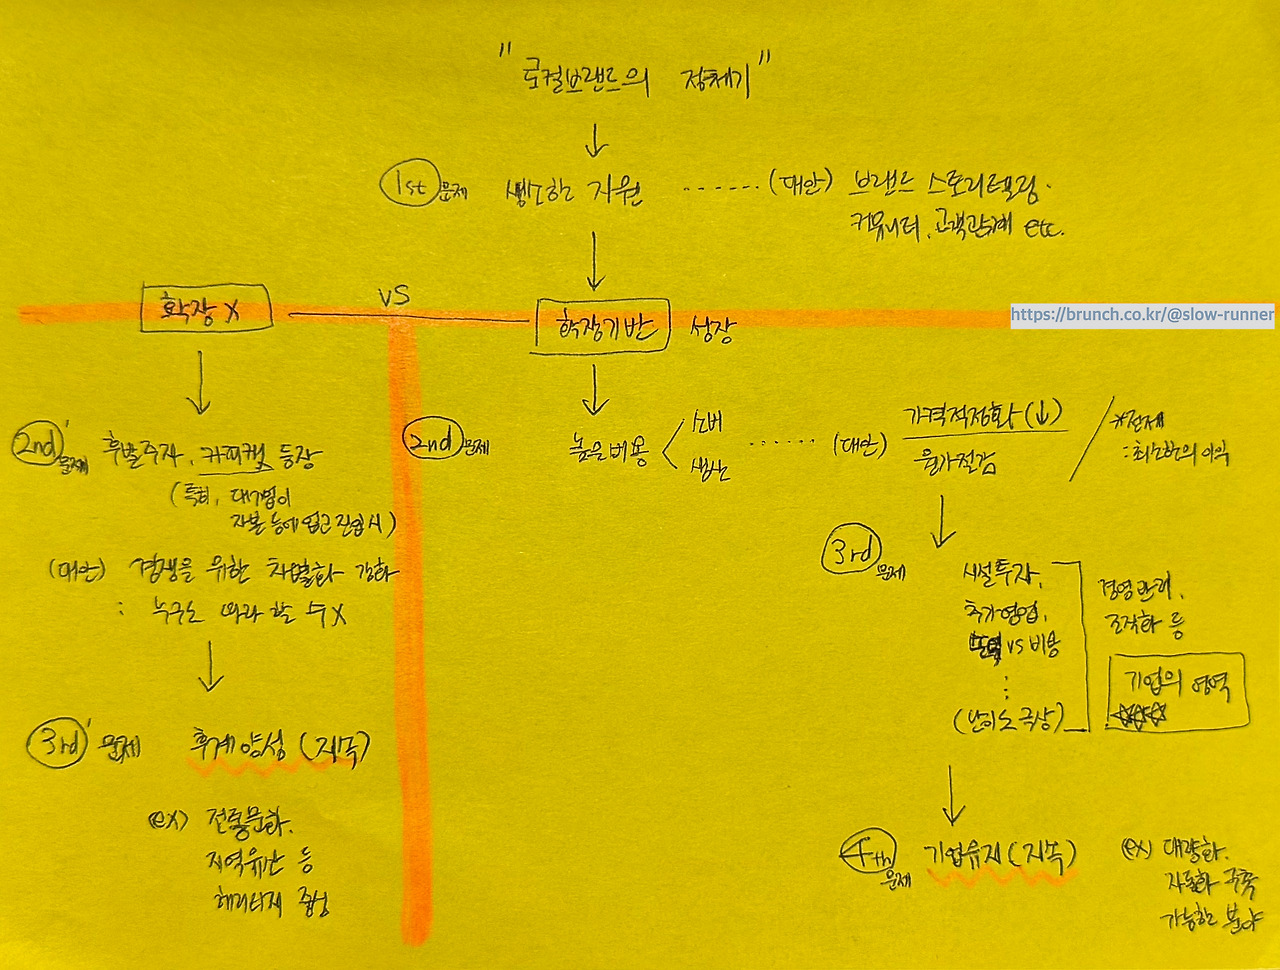 "로컬브랜드의 정체기"
1st 문제 생소한 자원 ······· (대안) 브랜드 스토리텔링.
커뮤니티, 고객관계 etc.
확장 X
vs
확장기반 성장
https://brunch.co.kr/@slow-runner
2nd' 문제 후발주자, 카피캣 등장
(특히, 대기업이
자본 등에 업고 진입 시)
(대안) 경쟁을 위한 차별화 강화
: 누구도 따라 할 수 X
3rd' 문제 후계양성 (지속)
ex) 전통문화,
지역유산 등
헤리티지 중심
2nd 문제 높은비용
소비
생산
······ (대안) 가격적정화 (↓)
원가절감
*전제
: 최소한의 이익
3rd 문제 시설투자,
추가영업,
vs 비용
(난이도 극상)
경영관리,
조직화 등
기업의 영역
4th 문제 기업유지 (지속)
ex) 대량화.
자동화 구축
가능한 분야